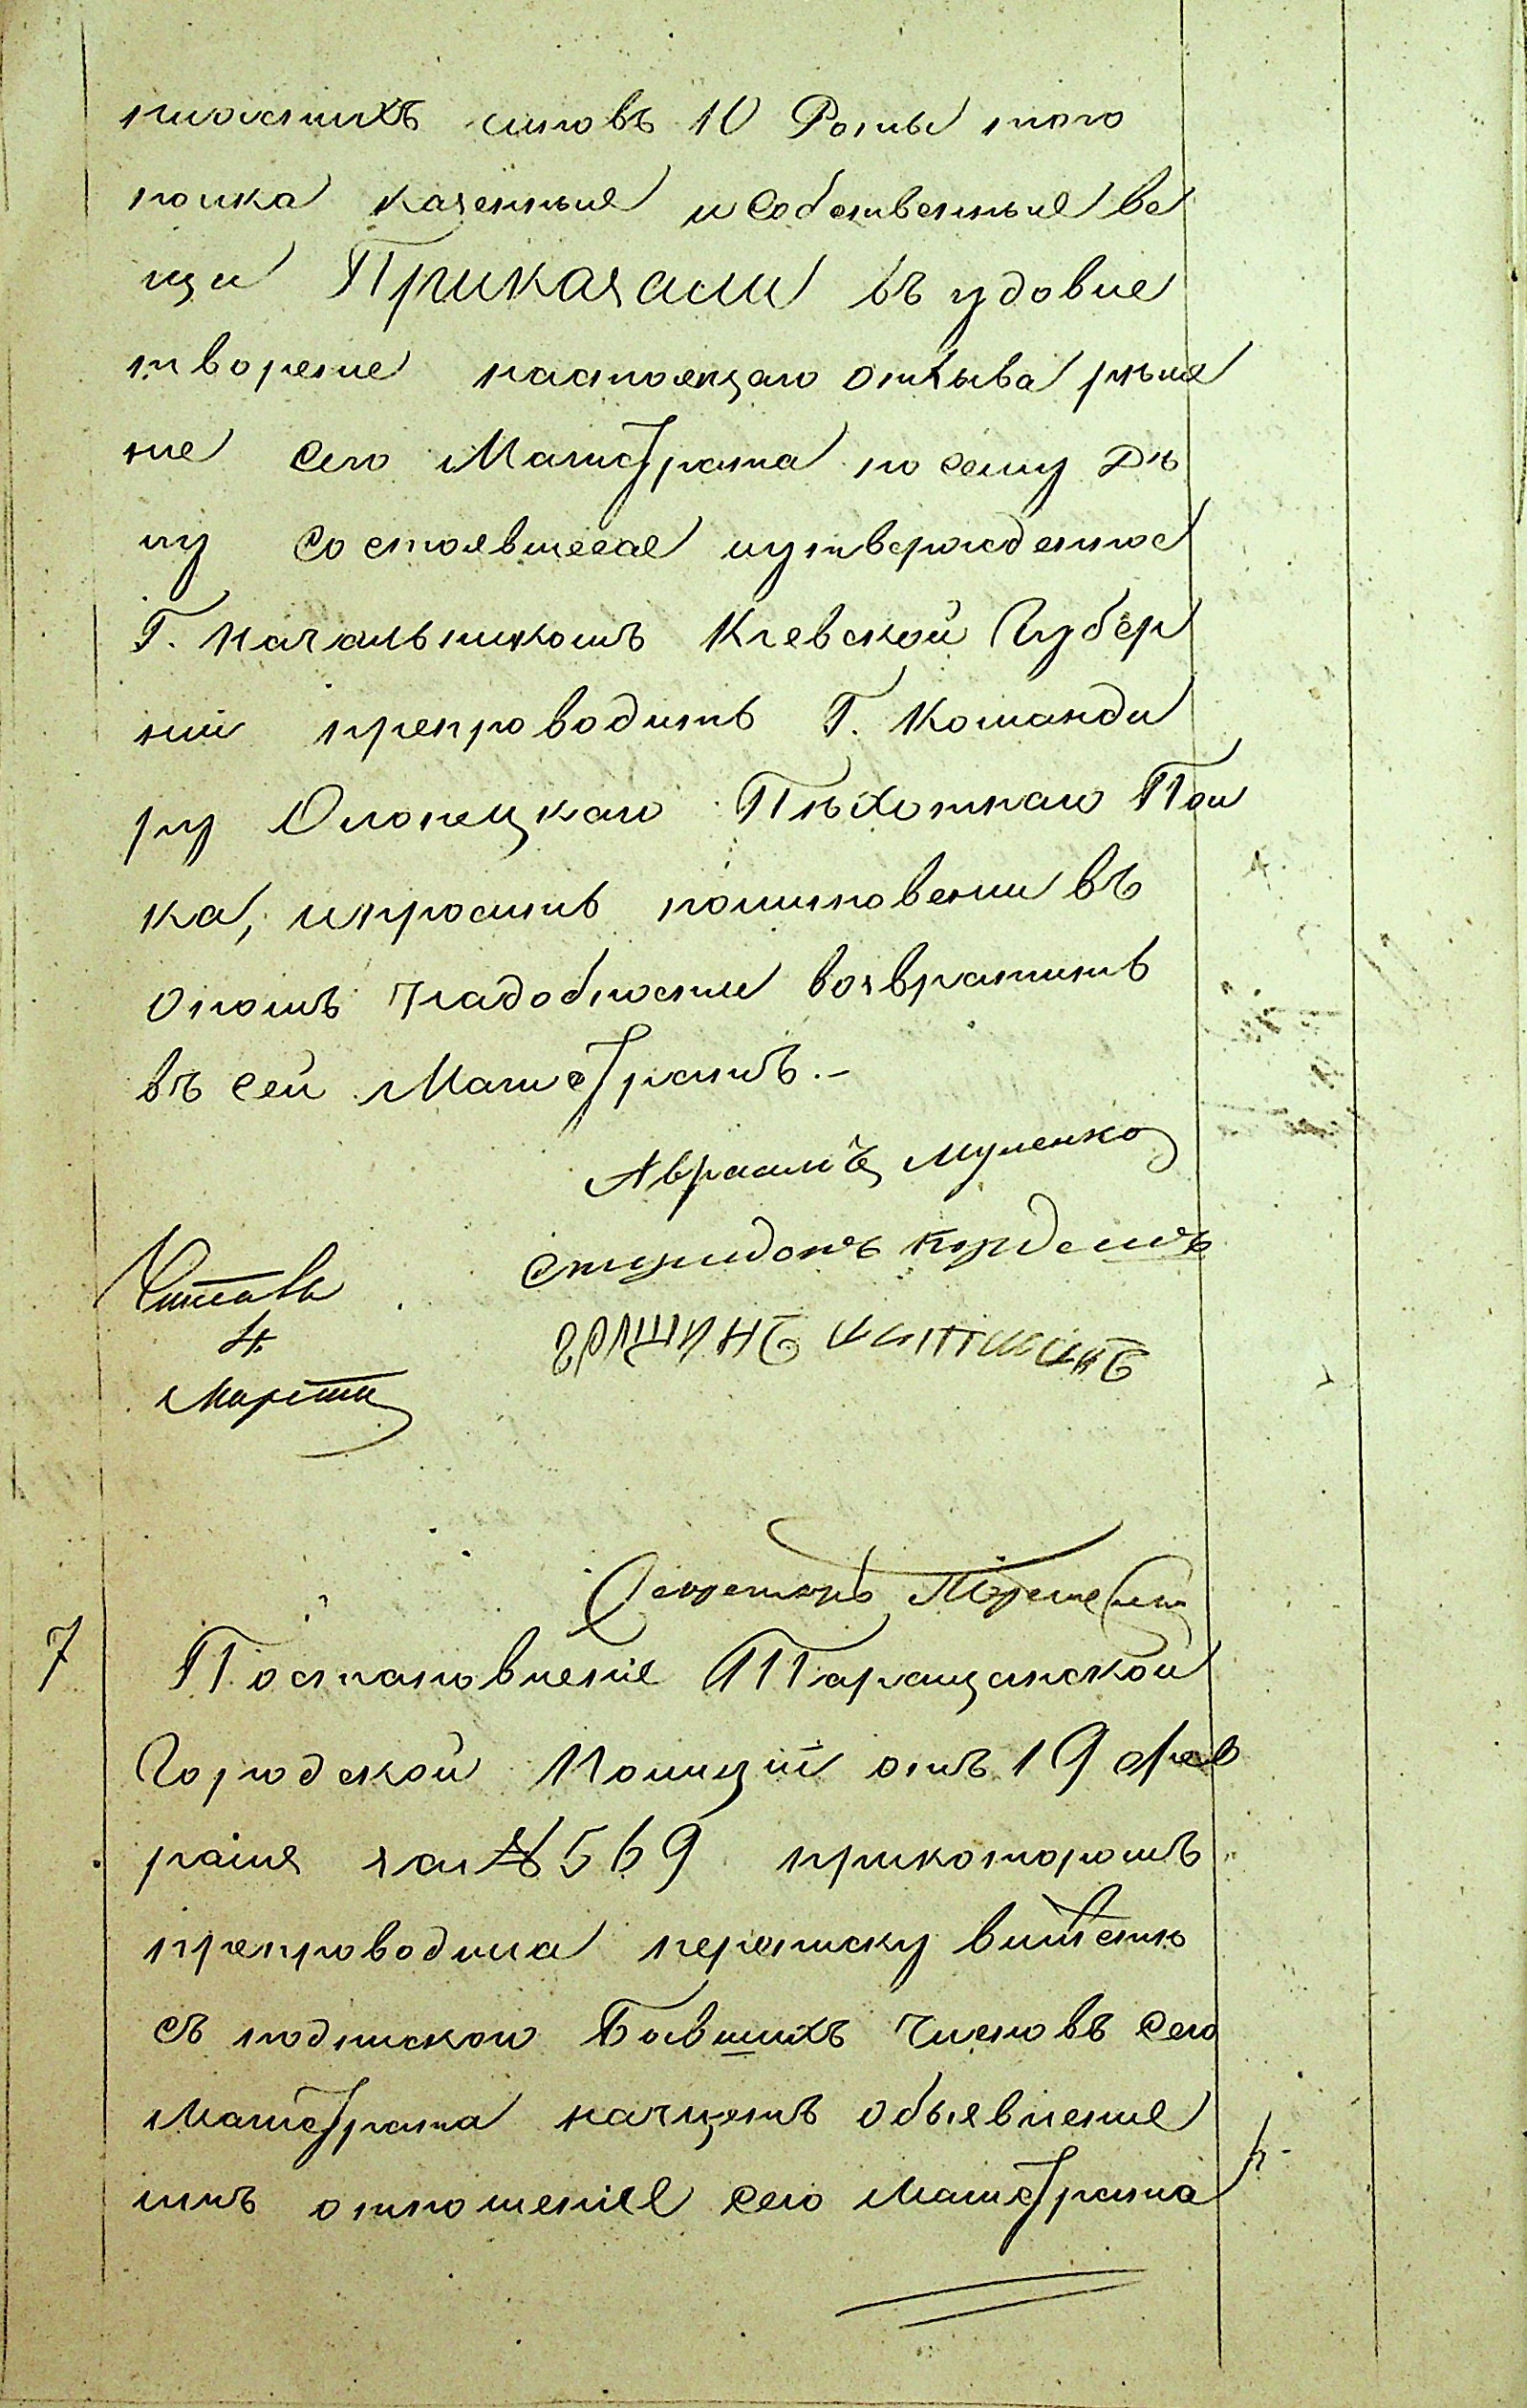 нижнихъ чиновъ 10 Роты того
полка казенные и собственные ве
щи Приказали въ удовле
твореніе настоящаго отзыва рѣше
ніе сего Магистрата по сему дѣ
лу состоявшееся и утвержденное
Г. Начальникомъ Кіевской Губер
ніи препроводить Г. Команди
ру Олонецкаго Пѣхотнаго Пол
ка, и просить по минованіи въ
ономъ надобности возвратить
въ сей Магистратъ.-
Авраамъ Муленко
Спиридонъ
Читалъ
4
Марта
Секретарь
7
Постановленіе Таращанской
Городской Полиціи отъ 19 Фев
раля за № 569 при которомъ
препроводила переписку вмѣстѣ
съ подпискою Бывшихъ Членовъ сего
Магистрата насчетъ объявленія
имъ отношенія сего Магистрата